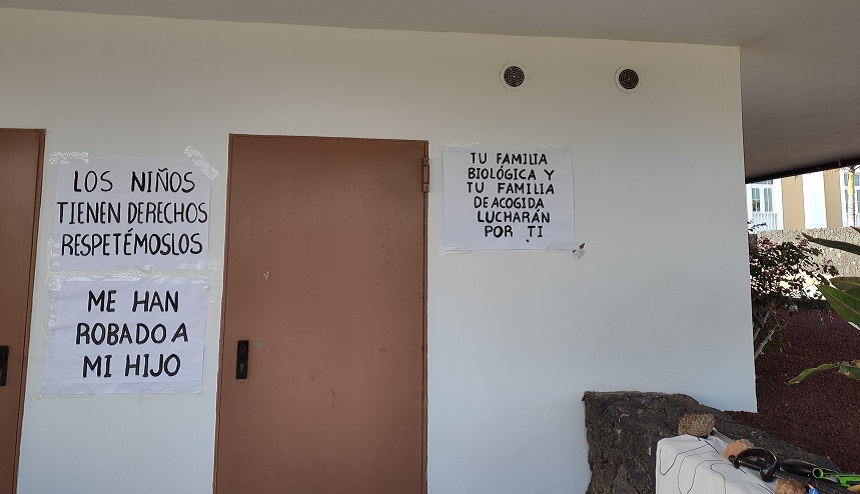 LOS NIÑOS
TIENEN DERECHOS
RESPETÉMOSLOS
ME HAN
ROBADO A
MI HIJO
TU FAMILIA
BIOLÓGICA Y
TU FAMILIA
DE ACOGIDA
LUCHARÁN
POR TI